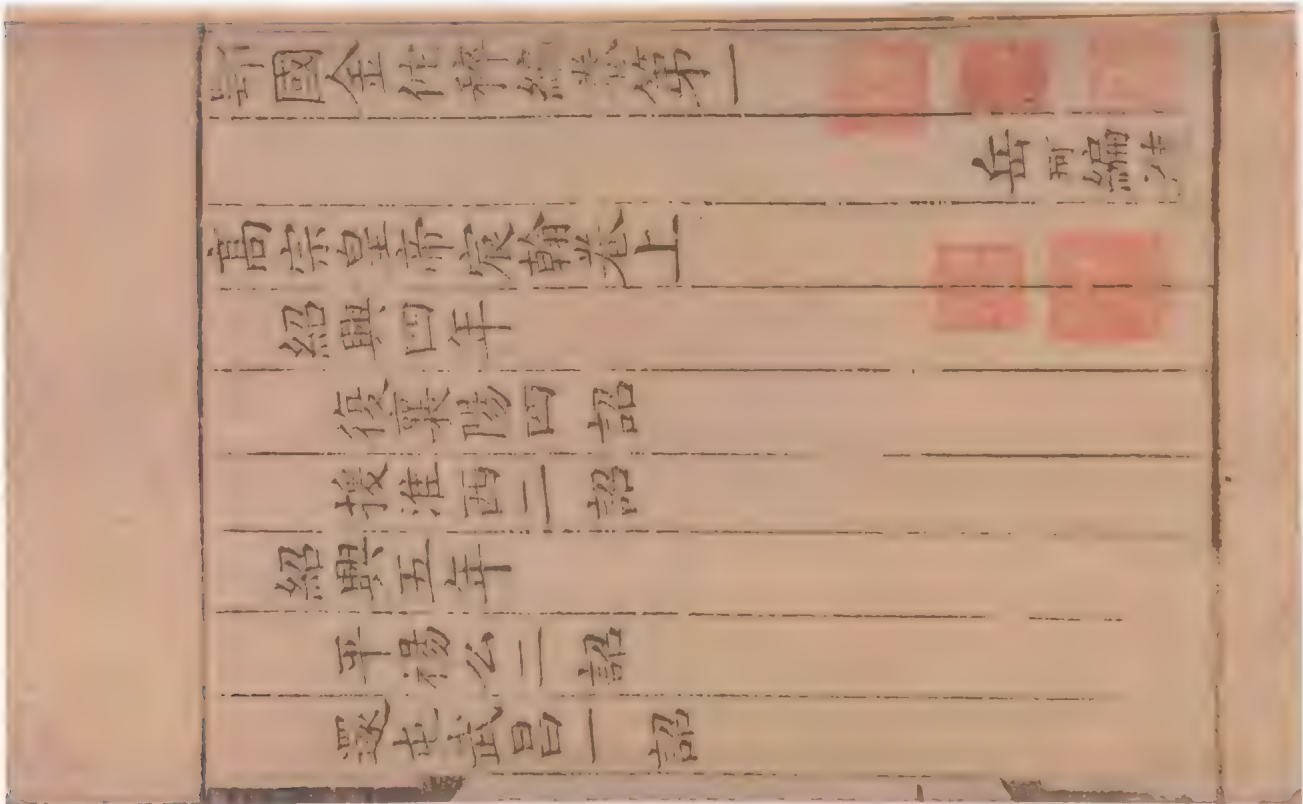 鄂國金佗稡編卷第一
岳珂編進
高宗皇帝宸翰卷上
紹興四年
復襄陽四詔
援淮西二詔
紹興五年
平楊么二詔
還屯武昌一詔